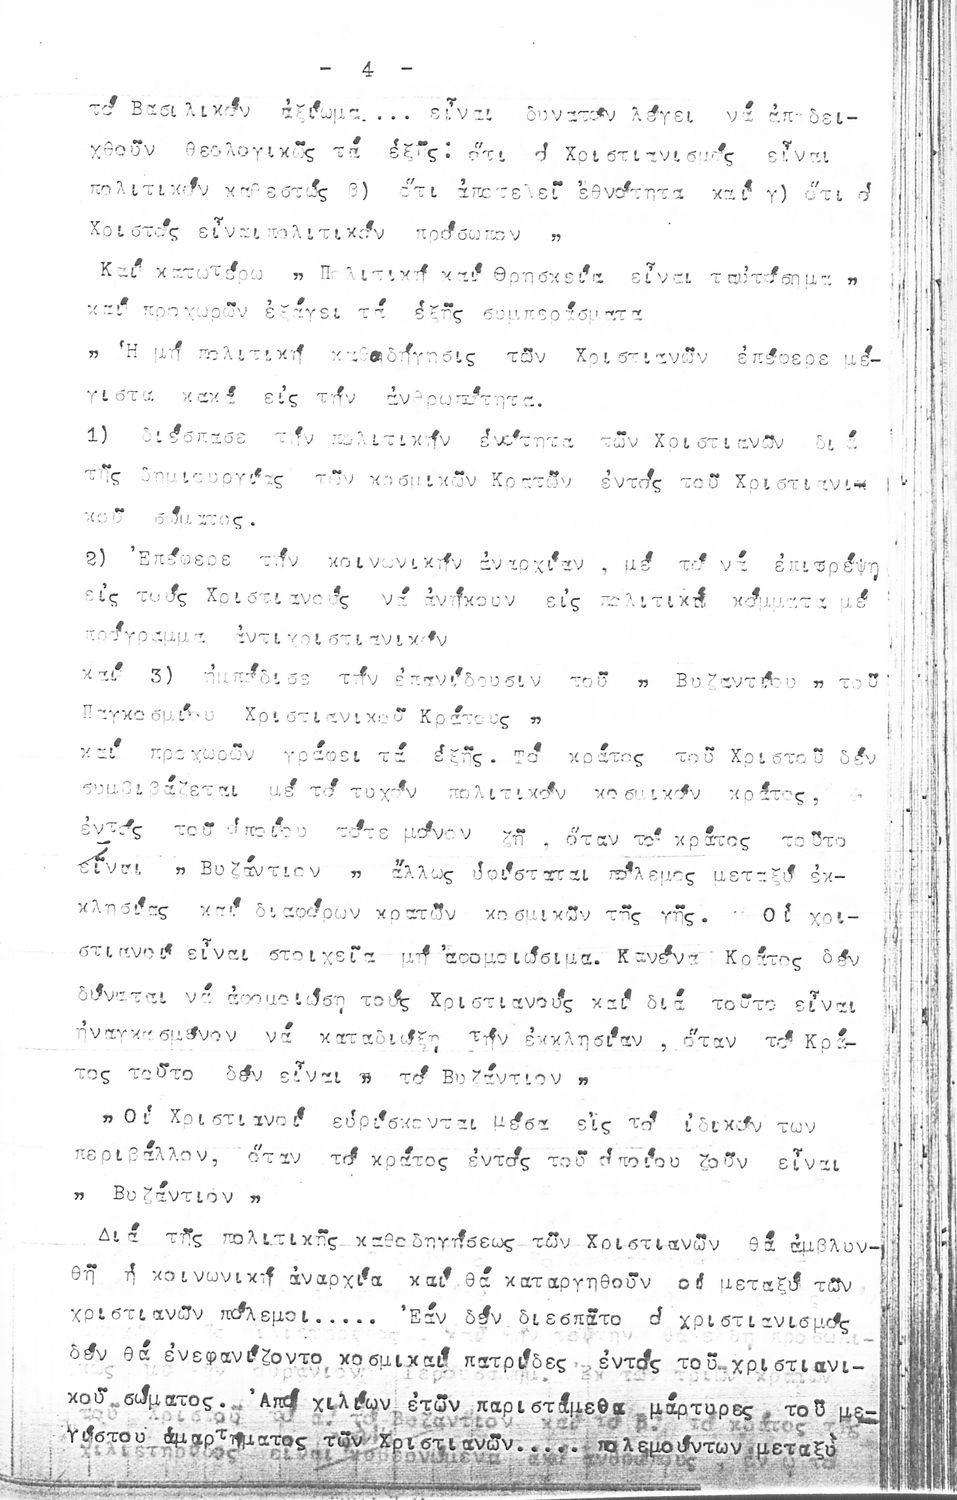 - 4 -
τό Βασιλικόν ἀξίωμα.... εἶναι δυνατόν λέγει νά ἀποδει-
χθοῦν θεολογικῶς τά ἑξῆς: ὅτι ὁ Χριστιανισμός εἶναι
πολιτικόν καθεστώς β) ὅτι ἀποτελεῖ ἐθνότητα καί γ) ὅτι ὁ
Χριστός εἶναι πολιτικόν πρόσωπον „
Καί κατωτέρω „ Πολιτική καί Θρησκεία εἶναι ταὐτόσημα „
καί προχωρῶν ἐξάγει τά ἑξῆς συμπεράσματα
„ Ἡ μή πολιτική καθοδήγησις τῶν Χριστιανῶν ἐπέφερε μέ-
γιστα κακά εἰς τήν ἀνθρωπότητα.
1) διέσπασε τήν πολιτικήν ἑνότητα τῶν Χριστιανῶν διά
τῆς δημιουργίας τῶν κοσμικῶν Κρατῶν ἐντός τοῦ Χριστιανι-
κοῦ σώματος.
2) Ἐπέφερε τήν κοινωνικήν ἀναρχίαν , μέ τό νά ἐπιτρέψῃ
εἰς τούς Χριστιανούς νά ἀνήκουν εἰς πολιτικά κόμματα μέ
πρόγραμμα ἀντιχριστιανικόν
καί 3) ἠμπόδισε τήν ἐπανίδρυσιν τοῦ „ Βυζαντίου „ τοῦ
Παγκοσμίου Χριστιανικοῦ Κράτους „
καί προχωρῶν γράφει τά ἑξῆς. Τό κράτος τοῦ Χριστοῦ δέν
συμβιβάζεται μέ τό τυχόν πολιτικόν κοσμικόν κράτος,
ἐντός τοῦ ὁποίου τότε μόνον ζῆ , ὅταν τό κράτος τοῦτο
εἶναι „ Βυζάντιον „ ἄλλως ὑφίσταται πόλεμος μεταξύ ἐκ-
κλησίας καί διαφόρων κρατῶν κοσμικῶν τῆς γῆς. Οἱ χρι-
στιανοί εἶναι στοιχεῖα μή ἀφομοιώσιμα. Κανένα Κράτος δέν
δύναται νά ἀφομοιώσῃ τούς Χριστιανούς καί διά τοῦτο εἶναι
ἠναγκασμένον νά καταδιώξῃ τήν ἐκκλησίαν , ὅταν τό Κρά-
τος τοῦτο δέν εἶναι „ τό Βυζάντιον „
„ Οἱ Χριστιανοί εὑρίσκονται μέσα εἰς τό ἰδικόν των
περιβάλλον, ὅταν τό κράτος ἐντός τοῦ ὁποίου ζοῦν εἶναι
„ Βυζάντιον „
Διά τῆς πολιτικῆς καθοδηγήσεως τῶν Χριστιανῶν θά ἀμβλυν-
θῆ ἡ κοινωνική ἀναρχία καί θά καταργηθοῦν οἱ μεταξύ τῶν
χριστιανῶν πόλεμοι..... Ἐάν δέν διεσπᾶτο ὁ χριστιανισμός
δέν θά ἐνεφανίζοντο κοσμικαί πατρίδες ἐντός τοῦ χριστιανι-
κοῦ σώματος. Ἀπό χιλίων ἐτῶν παριστάμεθα μάρτυρες τοῦ με-
γίστου ἁμαρτήματος τῶν Χριστιανῶν..... πολεμούντων μεταξύ